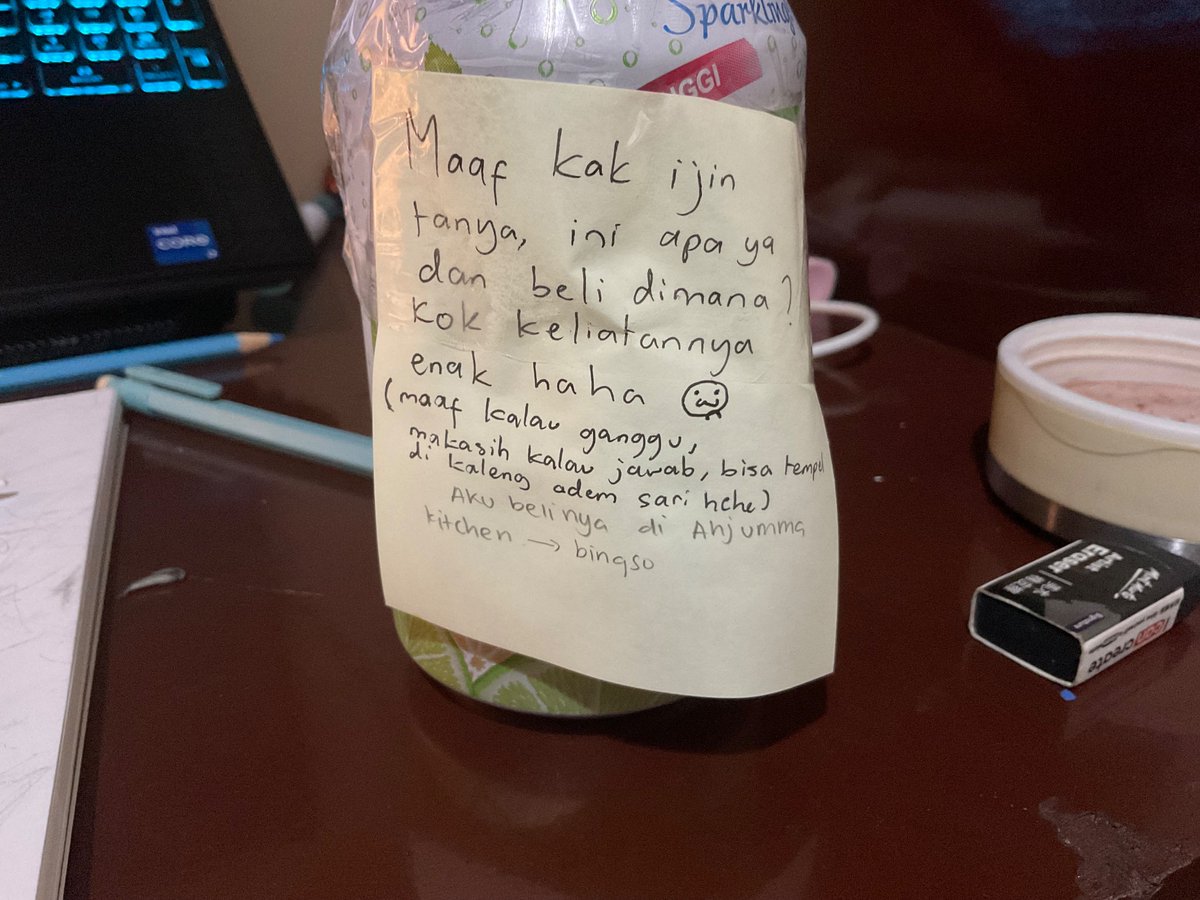 Sparkling
NGGI
Maaf kak ijin
tanya, ini apa ya
dan beli dimana?
Kok keliatannya
enak haha
(maaf kalau ganggu,
makasih kalau jawab, bisa tempel
di kaleng adem sari hehe)
Aku belinya di Ahjumma
kitchen → bingso
intel
CORE
Artist
Eraser